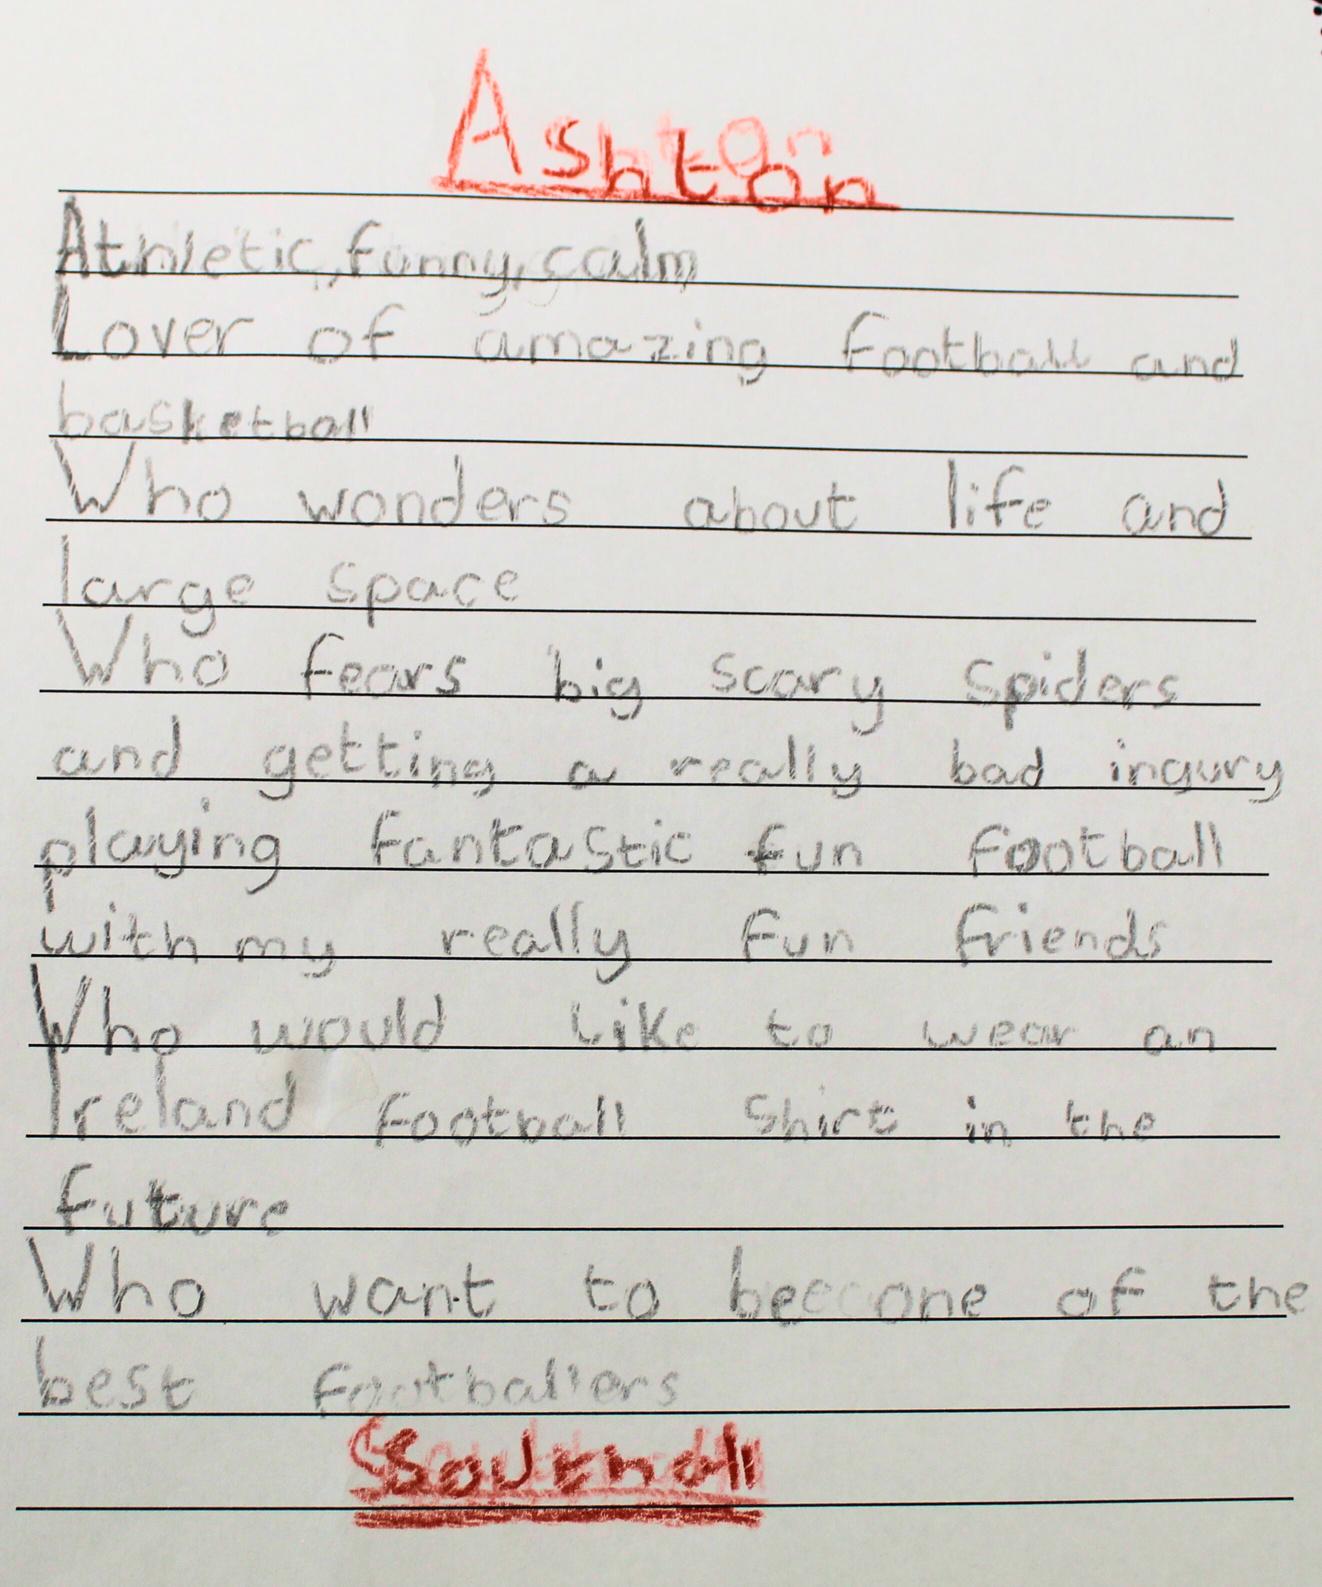 Ashton
Athletic, funny, calm
Lover of amazing football and
basketball
Who wonders about life and
large space
Who fears big scary spiders
and getting a really bad ingury
playing fantastic fun football
with my really fun friends
Who would like to wear an
Ireland football shirt in the
future
Who want to be one of the
best footballers